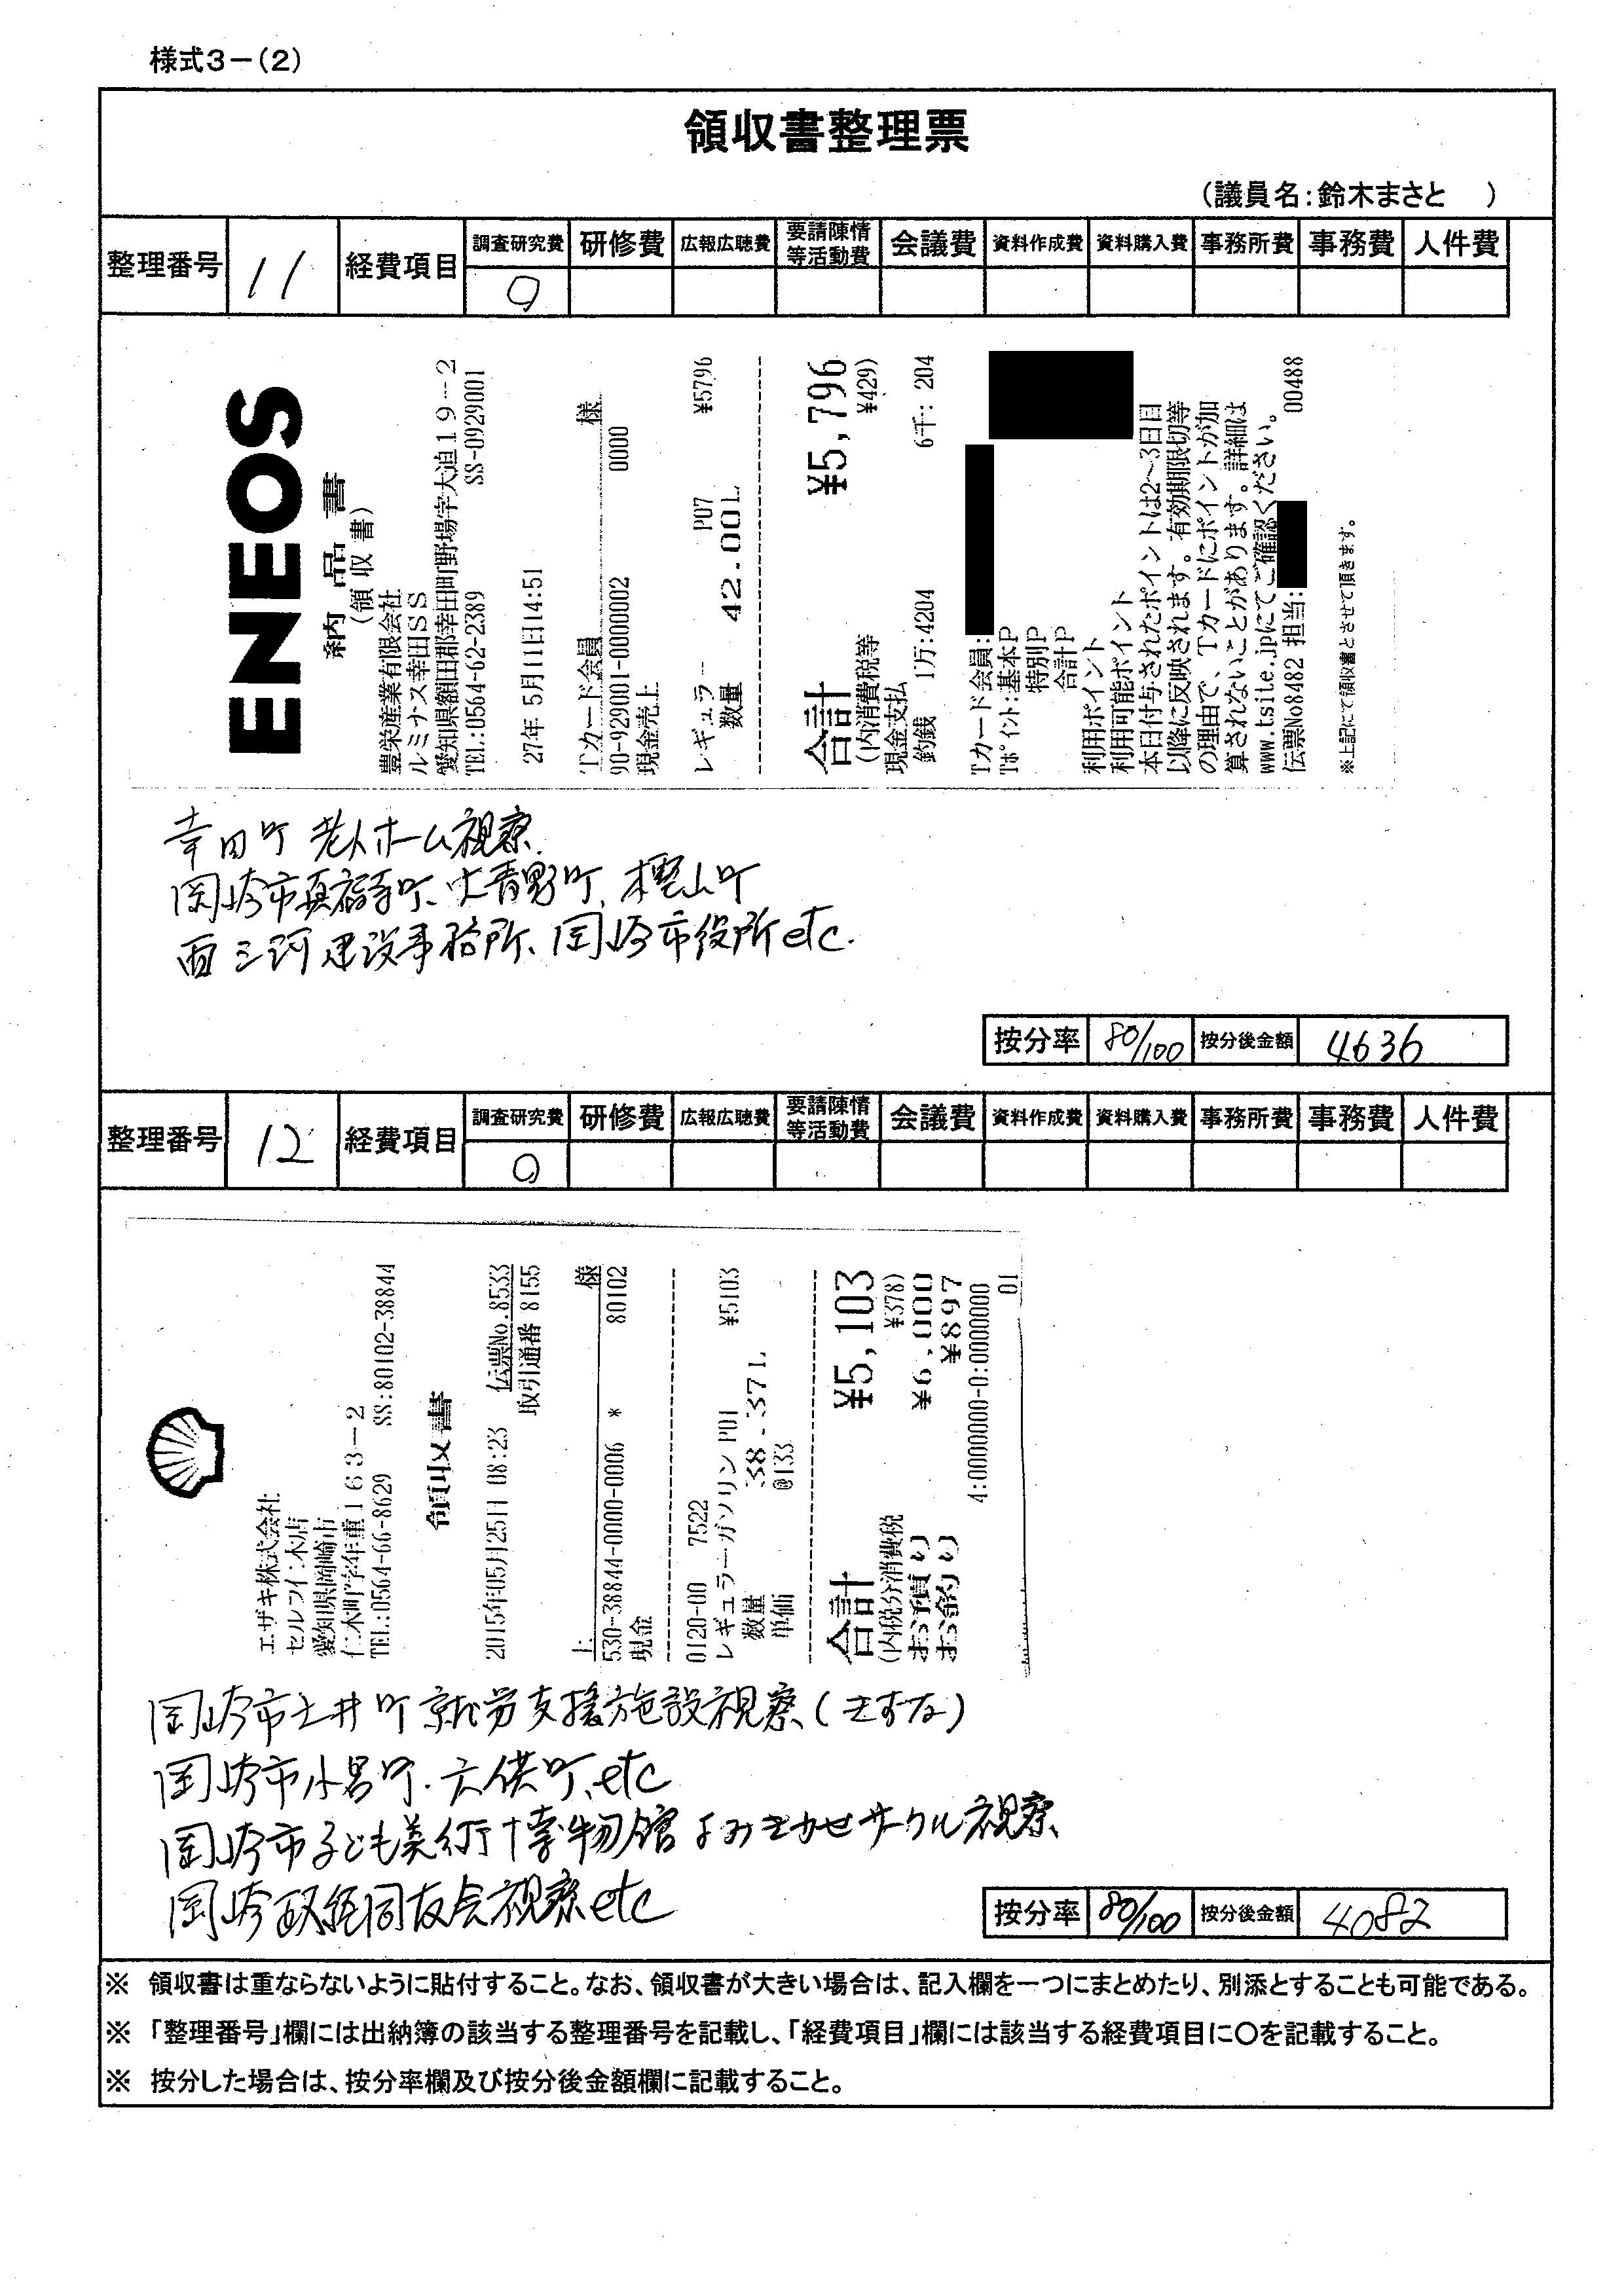 様式3-(2)
領収書整理票
(議員名:鈴木まさと )
整理番号 11 経費項目 調査研究費 研修費 広報広聴費 要請陳情等活動費 会議費 資料作成費 資料購入費 事務所費 事務費 人件費
○
ENEOS
納品書
(領収書)
豊栄産業有限会社
ルミナス幸田SS
愛知県額田郡幸田町野場字大迫19-2
TEL:0564-62-2389 SS-0929001
27年 5月11日14:51
Tカード会員 様
90-929001-0000002 0000
現金売上
レギュラー P07 ¥5796
数量 42.00L
合計 ¥5,796
(内消費税等 ¥429)
現金支払 6千: 204
釣銭 1万:4204
Tカード会員:
Tポイント:基本P
特別P
合計P
利用ポイント
利用可能ポイント
本日付与されたポイントは2~3日目
以降に反映されます。有効期限切等
の理由で、Tカードにポイントが加
算されないことがあります。詳細は
www.tsite.jpにてご確認ください。
伝票No8482 担当: 00488
※上記にて領収書とさせて頂きます。
幸田町 老人ホーム視察
岡崎市真福寺町、中青野町、樫山町
西三河建設事務所、岡崎市役所etc.
按分率 80/100 按分後金額 4636
整理番号 12 経費項目 調査研究費 研修費 広報広聴費 要請陳情等活動費 会議費 資料作成費 資料購入費 事務所費 事務費 人件費
○
エザキ株式会社
セルフイン木店
愛知県岡崎市
仁木町字年重163-2
TEL:0564-66-8629 SS:80102-38844
領収書
2015年05月25日 08:23 伝票No.8533
取引通番 8155
上 様
530-38844-0000-0006 * 80102
現金
0120-00 7522
レギュラーガソリン P01 ¥5103
数量 38.37L
単価 @133
合計 ¥5,103
(内税分消費税 ¥378)
お預り ¥6,000
お釣り ¥897
4:0000000-0:0000000
01
岡崎市土井町就労支援施設視察(きずな)
岡崎市小呂町、六供町、etc
岡崎市子ども美術博物館よみきかせサークル視察、
岡崎政経同友会視察etc
按分率 80/100 按分後金額 4082
※ 領収書は重ならないように貼付すること。なお、領収書が大きい場合は、記入欄を一つにまとめたり、別添とすることも可能である。
※ 「整理番号」欄には出納簿の該当する整理番号を記載し、「経費項目」欄には該当する経費項目に○を記載すること。
※ 按分した場合は、按分率欄及び按分後金額欄に記載すること。